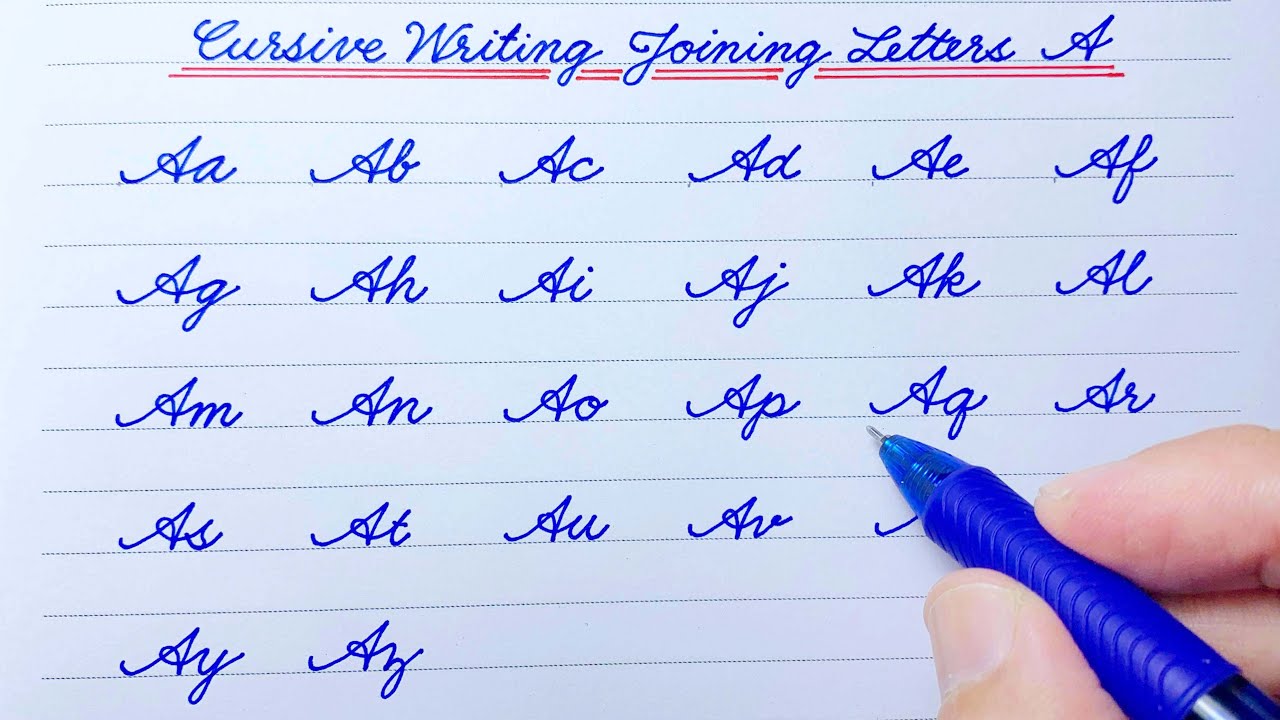 Cursive Writing Joining Letters A
Aa Ab Ac Ad Ae Af
Ag Ah Ai Aj Ak Al
Am An Ao Ap Aq Ar
As At Au Av
Ay Az